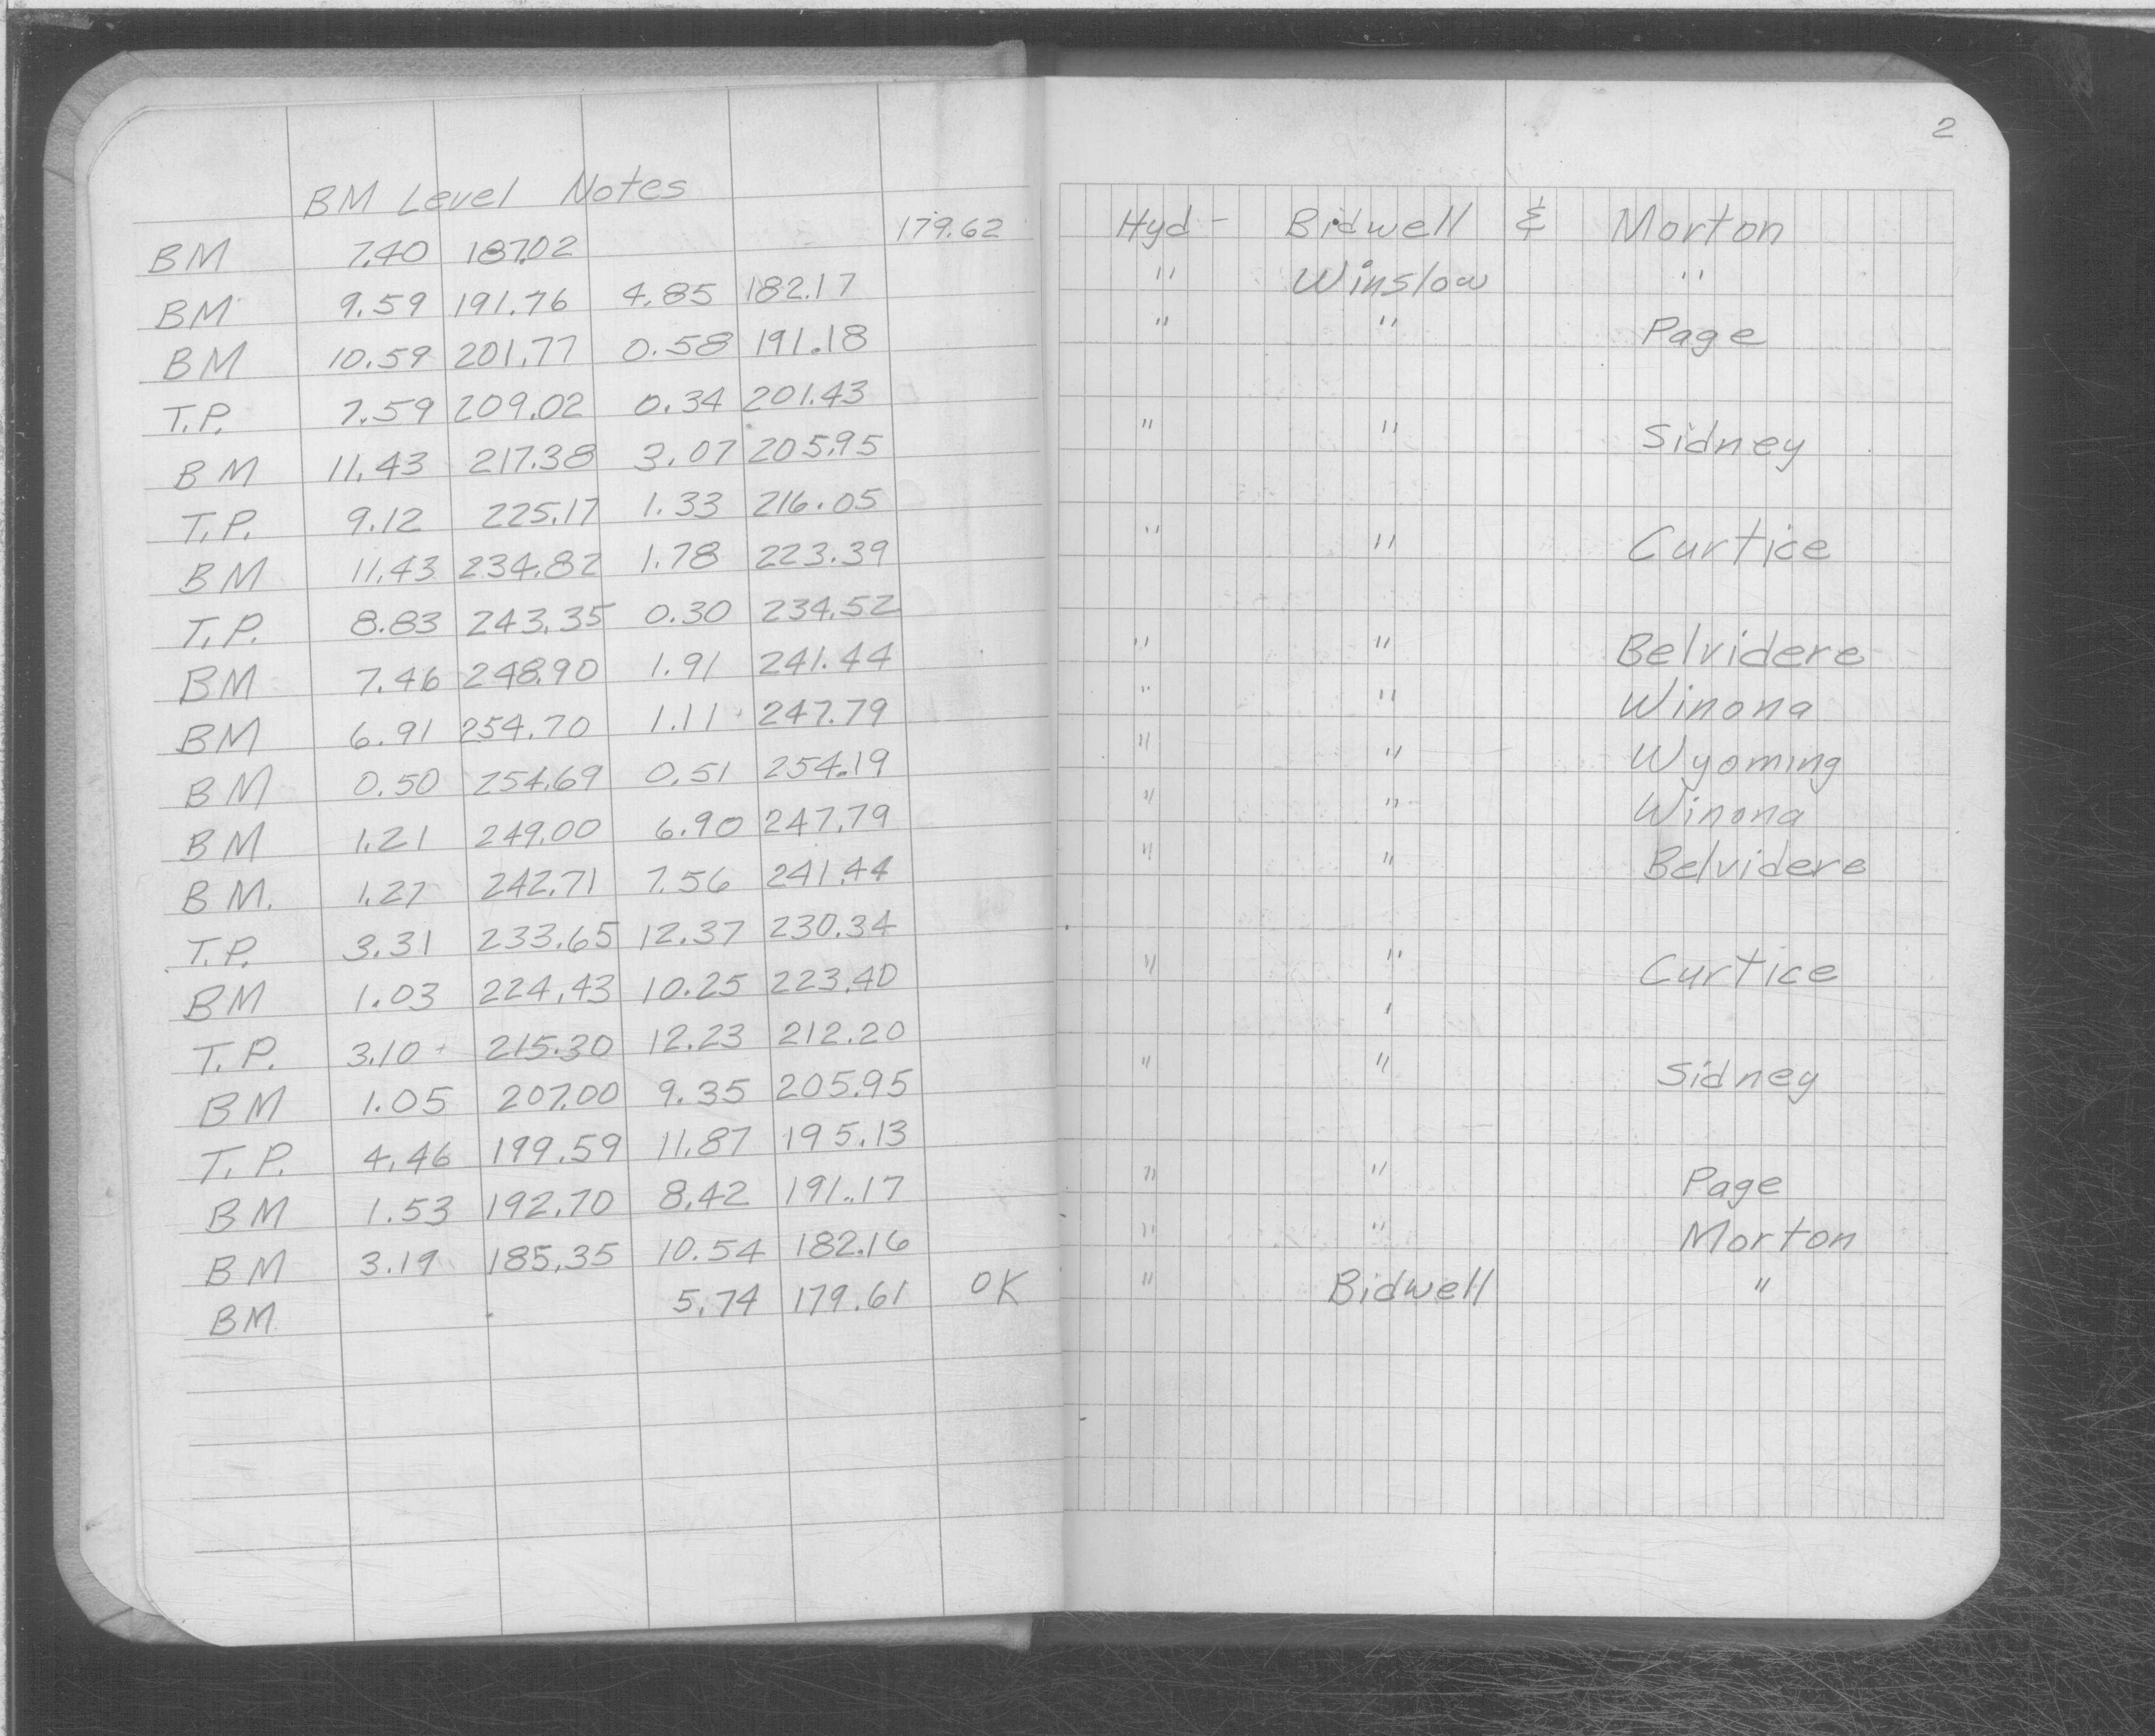 2
BM Level Notes
BM 7.40 187.02 179.62 Hyd - Bidwell & Morton
BM 9.59 191.76 4.85 182.17 " Winslow "
BM 10.59 201.77 0.58 191.18 " " Page
T.P. 7.59 209.02 0.34 201.43
BM 11.43 217.38 3.07 205.95 " " Sidney
T.P. 9.12 225.17 1.33 216.05
BM 11.43 234.82 1.78 223.39 " " Curtice
T.P. 8.83 243.35 0.30 234.52
BM 7.46 248.90 1.91 241.44 " " Belvidere
BM 6.91 254.70 1.11 247.79 " " Winona
BM 0.50 254.69 0.51 254.19 " " Wyoming
BM 1.21 249.00 6.90 247.79 " " Winona
BM. 1.27 242.71 7.56 241.44 " " Belvidere
T.P. 3.31 233.65 12.37 230.34
BM 1.03 224.43 10.25 223.40 " " Curtice
T.P. 3.10 215.30 12.23 212.20 '
BM 1.05 207.00 9.35 205.95 " " Sidney
T.P. 4.46 199.59 11.87 195.13
BM 1.53 192.70 8.42 191.17 " " Page
BM 3.19 185.35 10.54 182.16 " " Morton
BM 5.74 179.61 OK " Bidwell "